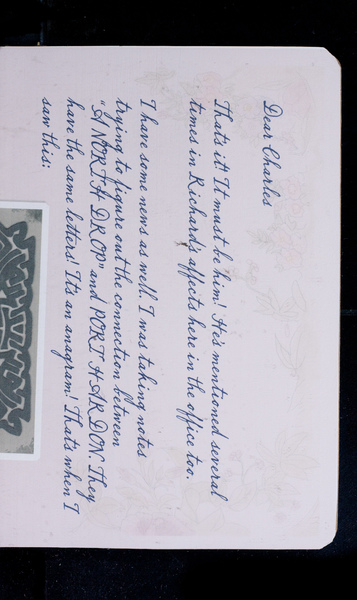 Dear Charles
That's it! It must be him! He's mentioned several
times in Richard's affects here in the office too.
I have some news as well. I was taking notes
trying to figure out the connection between
"A NORTH DROP" and PORT HARDON. They
have the same letters! It's an anagram! That's when I
saw this: